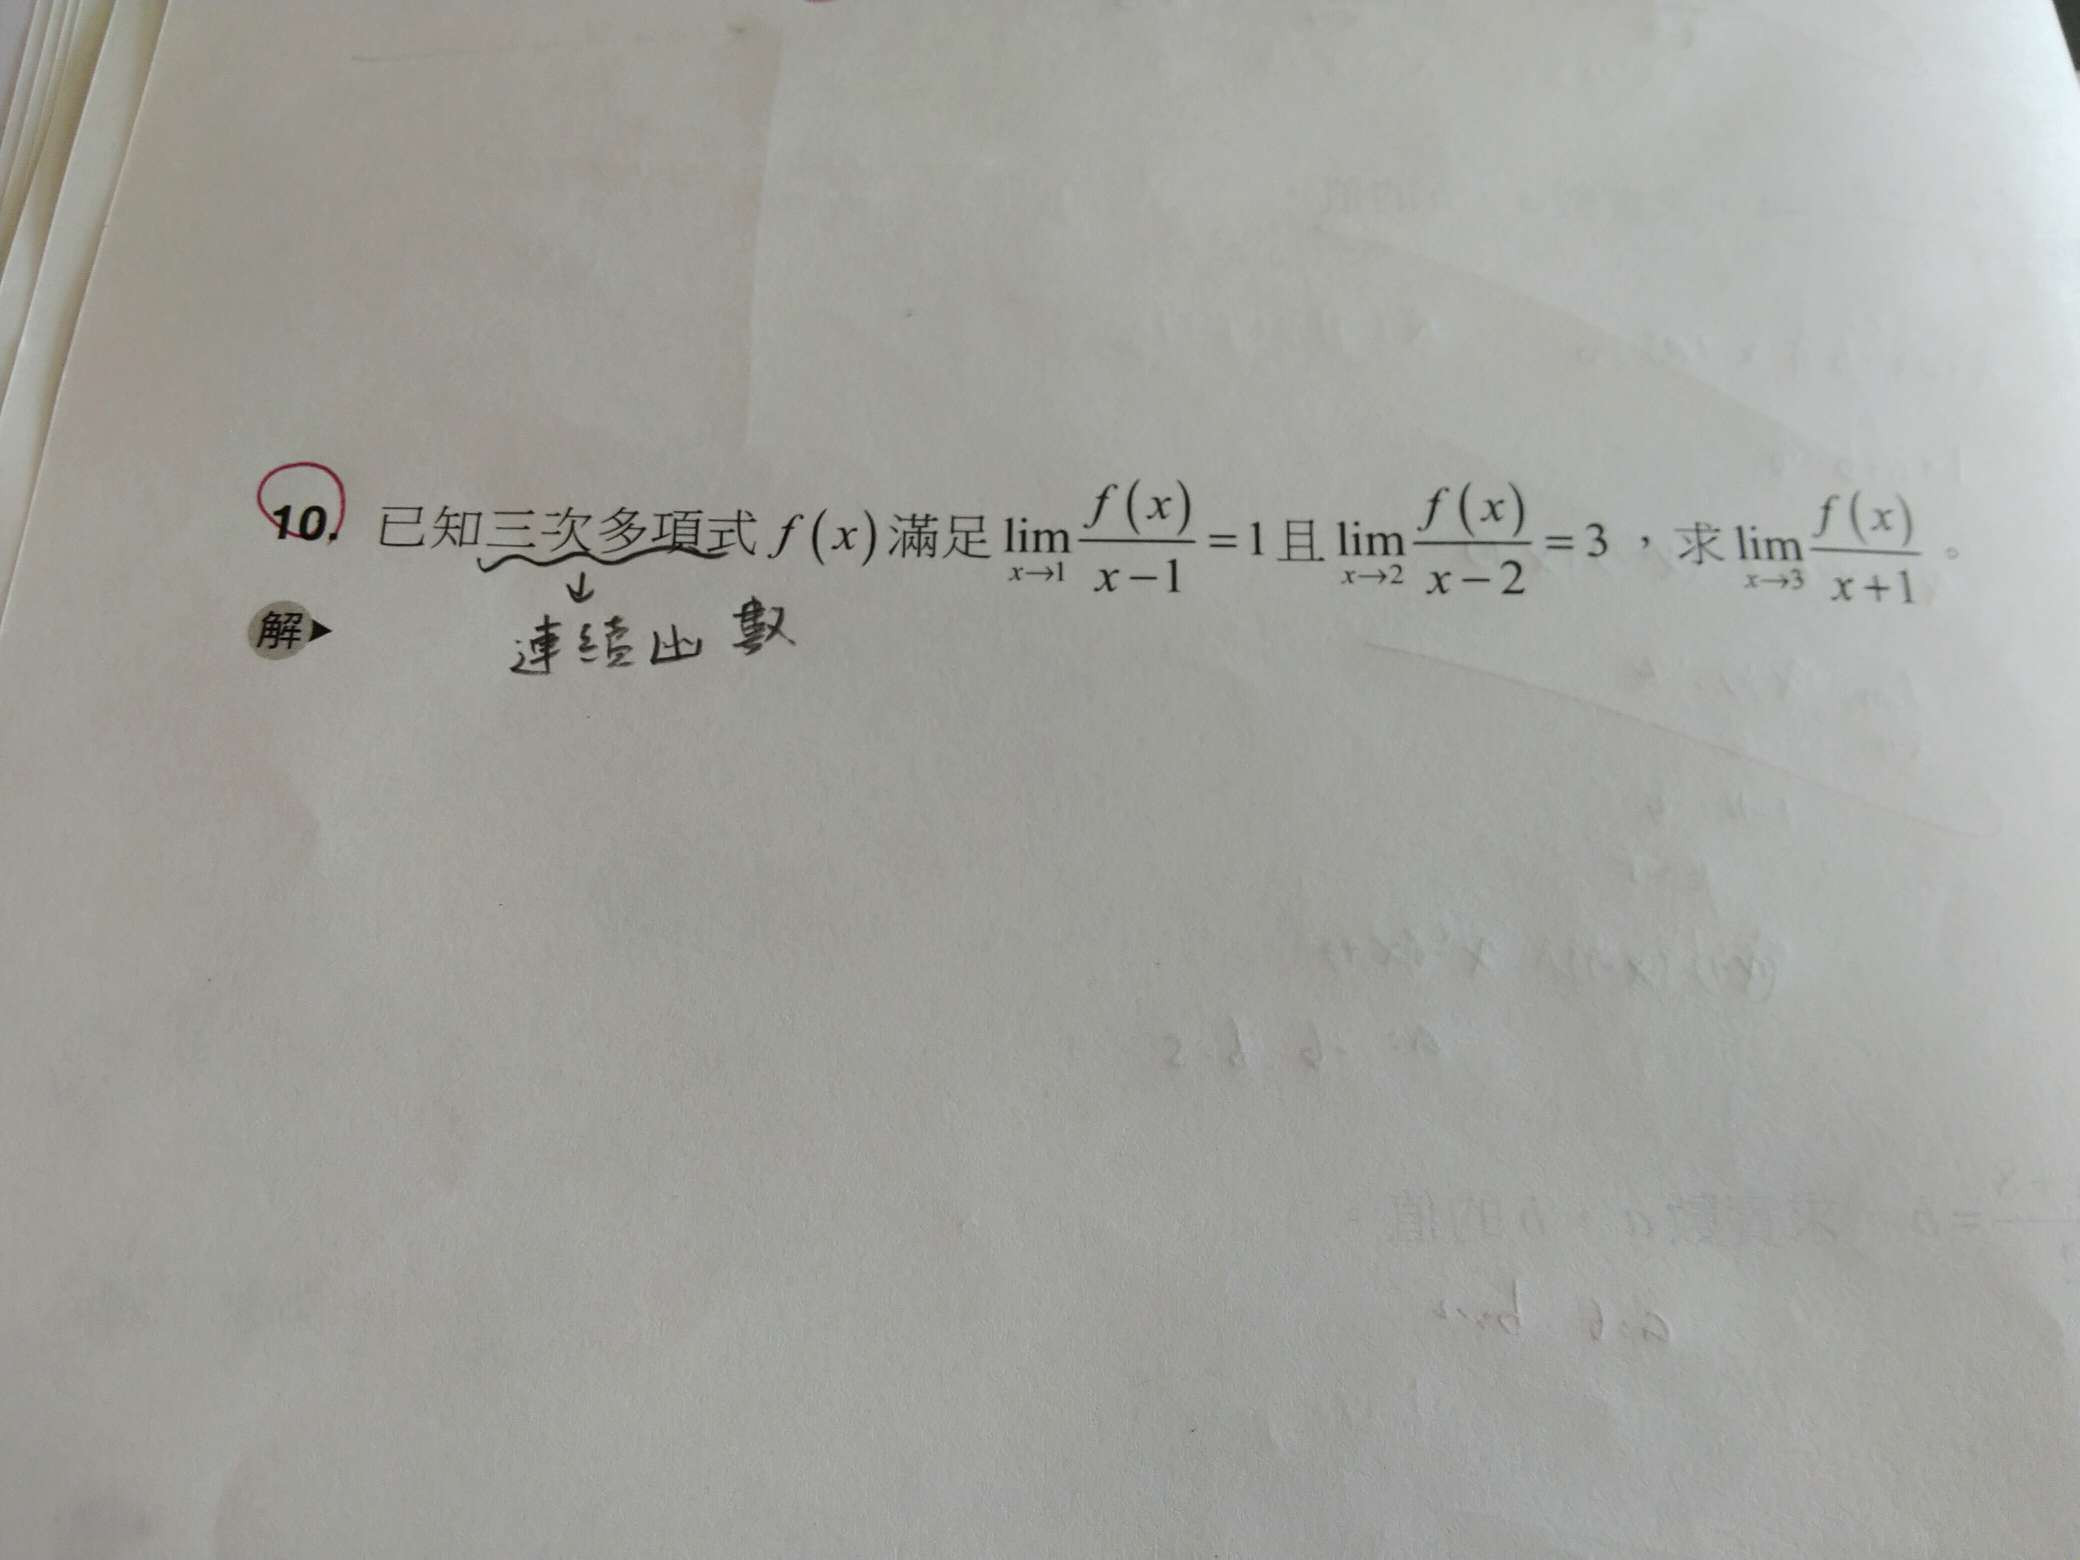 10. 已知三次多項式 f(x) 滿足 lim_{x→1} f(x)/(x−1) = 1 且 lim_{x→2} f(x)/(x−2) = 3，求 lim_{x→3} f(x)/(x+1)。
↓
解▶ 連續出數